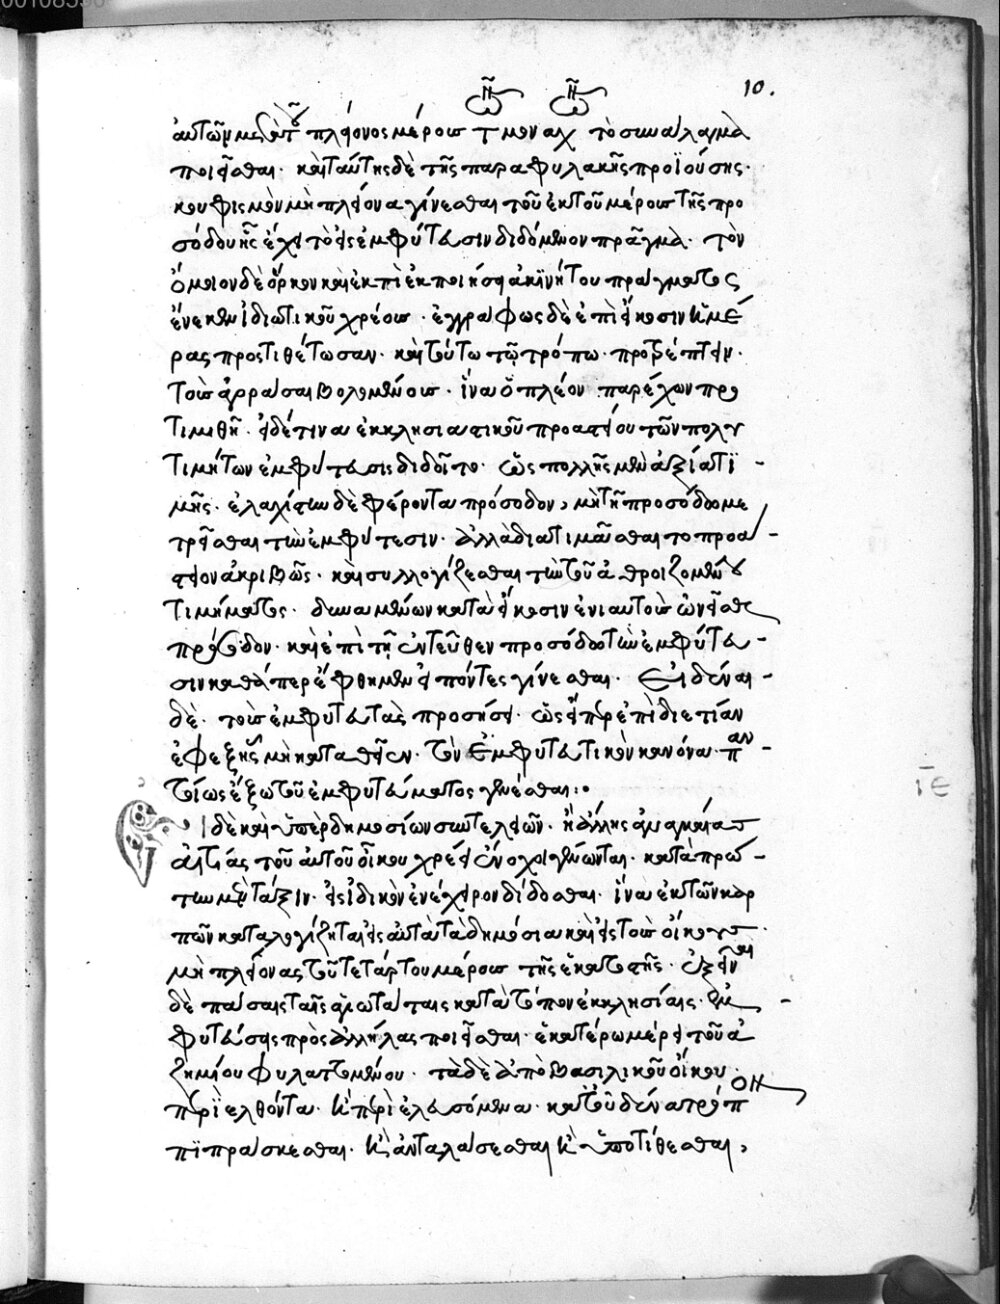 10.
αὐτῶν μετὰ τοῦ πλείονος μέρους τ μοναχ τὸ συνάλαγμα
ποιεῖσθαι. καὶ ταύτης δὲ τῆς παραφυλακῆς προϊούσης.
κουφισμὸν μὴ πλείονα γίνεσθαι τοῦ ἕκτου μέρους τῆς προ
σόδου ἧς ἔχει τὸ εἰς ἐμφύτευσιν διδόμενον πρᾶγμα. τὸν
ὅμοιον δὲ ὅρκον καὶ ἐπὶ ἐκποιήσει ἀκινήτου πράγματος
ἕνεκεν ἰδιωτικοῦ χρέους. ἐγγράφως δὲ ἐπὶ εἴκοσιν ἡμέ
ρας προστιθέτωσαν. καὶ τούτω τῷ τρόπω. προτρέπειν.
τοὺς ἀγοράσαι βουλομένους. ἵνα ὁ πλέον παρέχων προ
τιμηθῆ. εἰ δέ τινα ἐκκλησιαστικοῦ προαστείου τῶν πολυ
τιμήτων ἐμφύτευσις διδοῖτο. ὡς πολλῆς μὲν ἀξίας τι
μῆς. ἐλαχίστην δὲ φέροντα πρόσοδον, μὴ τῆ προσόδω με
τρεῖσθαι τὴν ἐμφύτευσιν. ἀλλὰ διατιμᾶσθαι τὸ προά
στειον ἀκριβῶς. καὶ συλλογίζεσθαι τὴν τοῦ ἀθροιζομένου
τιμήματος. δυναμένων κατὰ εἴκοσιν ἐνιαυτοὺς ὠνεῖσθαι
πρόσοδον. καὶ ἐπὶ τῇ ἐντεῦθεν προσόδω τὴν ἐμφύτευ
σιν καθάπερ ἔφθημεν εἰπόντες γίνεσθαι. Εἰδέναι
δὲ. τοὺς ἐμφυτευτὰς προσήκει. ὡς εἴπερ ἐπὶ διετίαν
ἐφεξῆς μὴ καταθεῖεν. τὸν ἐμφυτευτικὸν κανόνα. παν
τοίως ἔξω τοῦ ἐμφυτεύματος γενέσθαι:
ιε
Εἰ δὲ καὶ ὑπὲρ δημοσίων συντελειῶν. ἢ ἄλλης ἀναγκαίας
αἰτίας τοῦ αὐτοῦ οἴκου χρέει ἐνοχοι γένωνται. κατὰ πρώ
την μὲν τάξιν. εἰς ἰδικὸν ἐνέχυρον δίδοσθαι. ἵνα ἐκ τῶν καρ
πῶν καταλογίζηται εἰς αὐτὰ τὰ δημόσια καὶ εἰς τοὺς οἴκους
μὴ πλείονας τοῦ τετάρτου μέρους τῆς ἑκατοστῆς. ἐξεῖναι
δὲ πάσαις ταῖς ἁγιωτάταις κατὰ τόπον ἐκκλησίαις. ἐμ
φυτεύσεις πρὸς ἀλλήλας ποιεῖσθαι. ἑκατέρω μέρει τοῦ ἀ
ζημίου φυλαττομένου. τὰ δὲ ἀπὸ βασιλικοῦ οἴκου
περιελθόντα. καὶ περιελευσόμενα. κατ᾿ οὐδένα τρόπον
πιπράσκεσθαι. καὶ ἀνταλάσεσθαι καὶ ὑποτίθεσθαι,